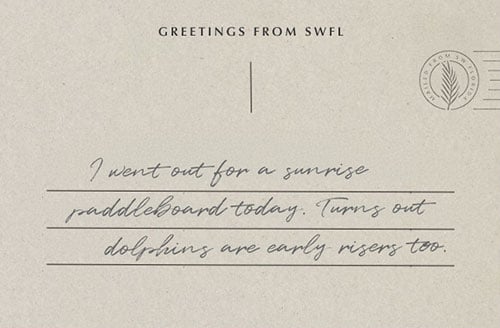 GREETINGS FROM SWFL
MAILED FROM SW FLORIDA
I went out for a sunrise
paddleboard today. Turns out
dolphins are early risers too.